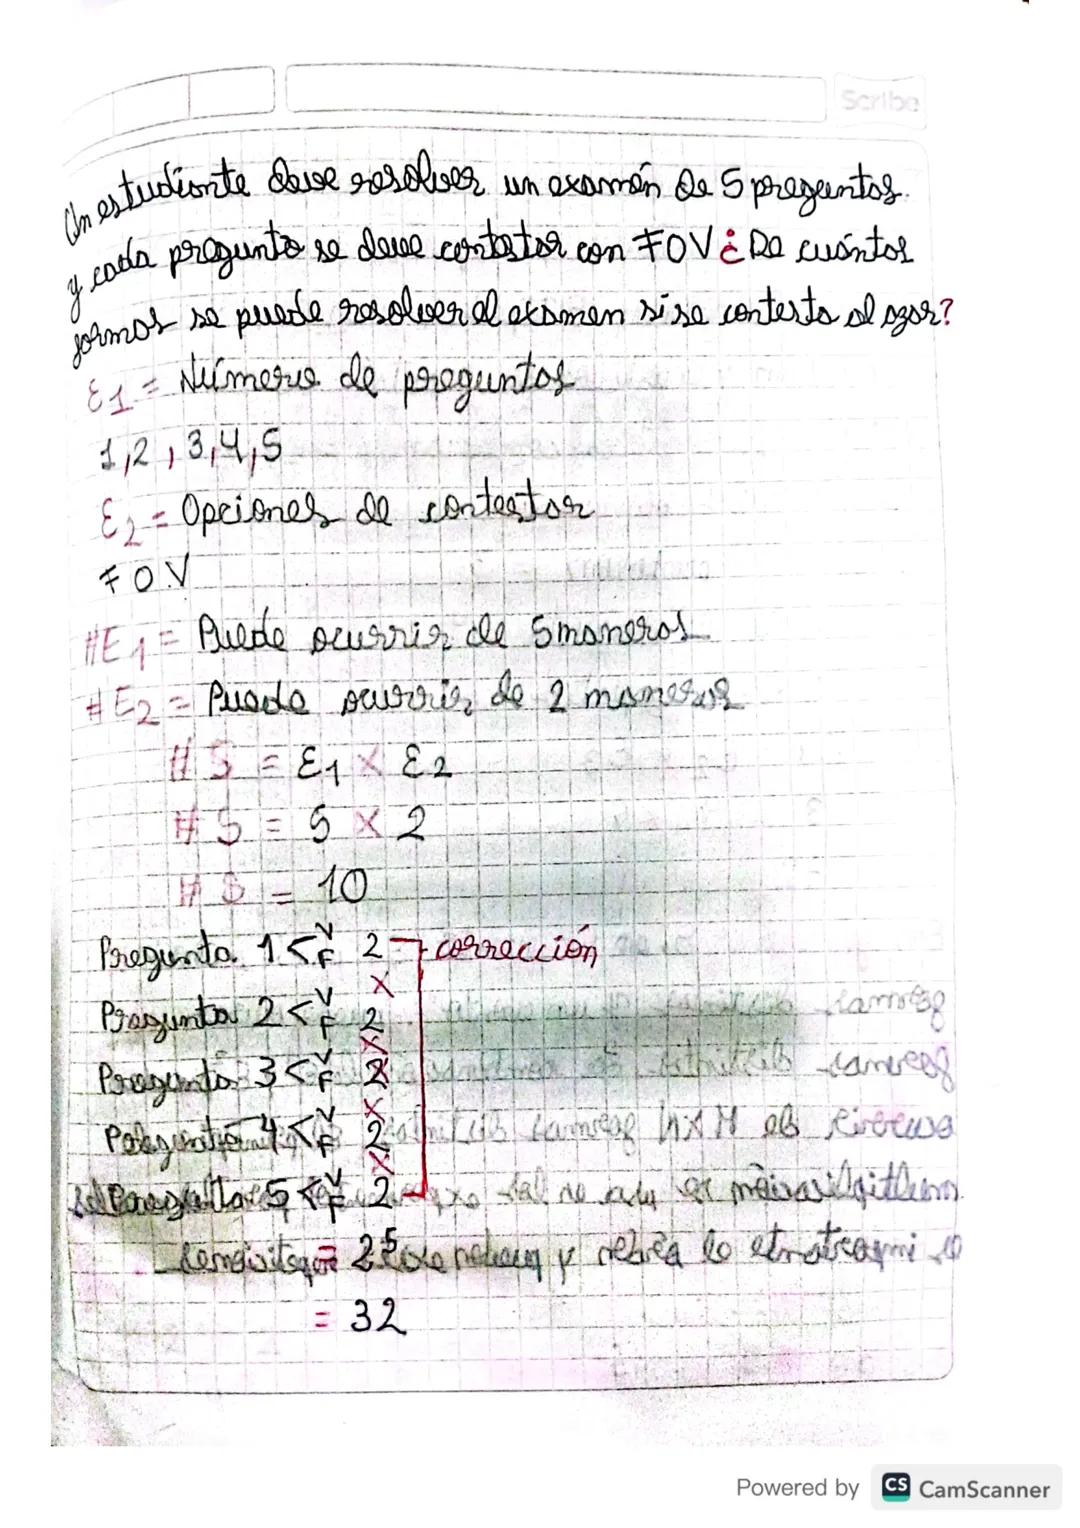 Scribe
Un estudiante deve resolver un examén de 5 preguntas.
y cada pregunta se deve contestar con F O V ¿ De cuántas
formas se puede resolver el examen si se contesta al azar?
E1 = Número de preguntas
1,2,3,4,5
E2 = Opciones de contestar
F O V
#E1 = Puede ocurrir de 5 maneras
#E2 = Puede ocurrir de 2 maneras
# S = E1 X E2
# S = 5 X 2
# S = 10
Pregunta 1 < V F 2 corrección
X
Pregunta 2 < V F 2
X
Pregunta 3 < V F 2
X
Pregunta 4 < V F 2
X
Pregunta 5 < V F 2
= 2⁵
= 32
Powered by CS CamScanner